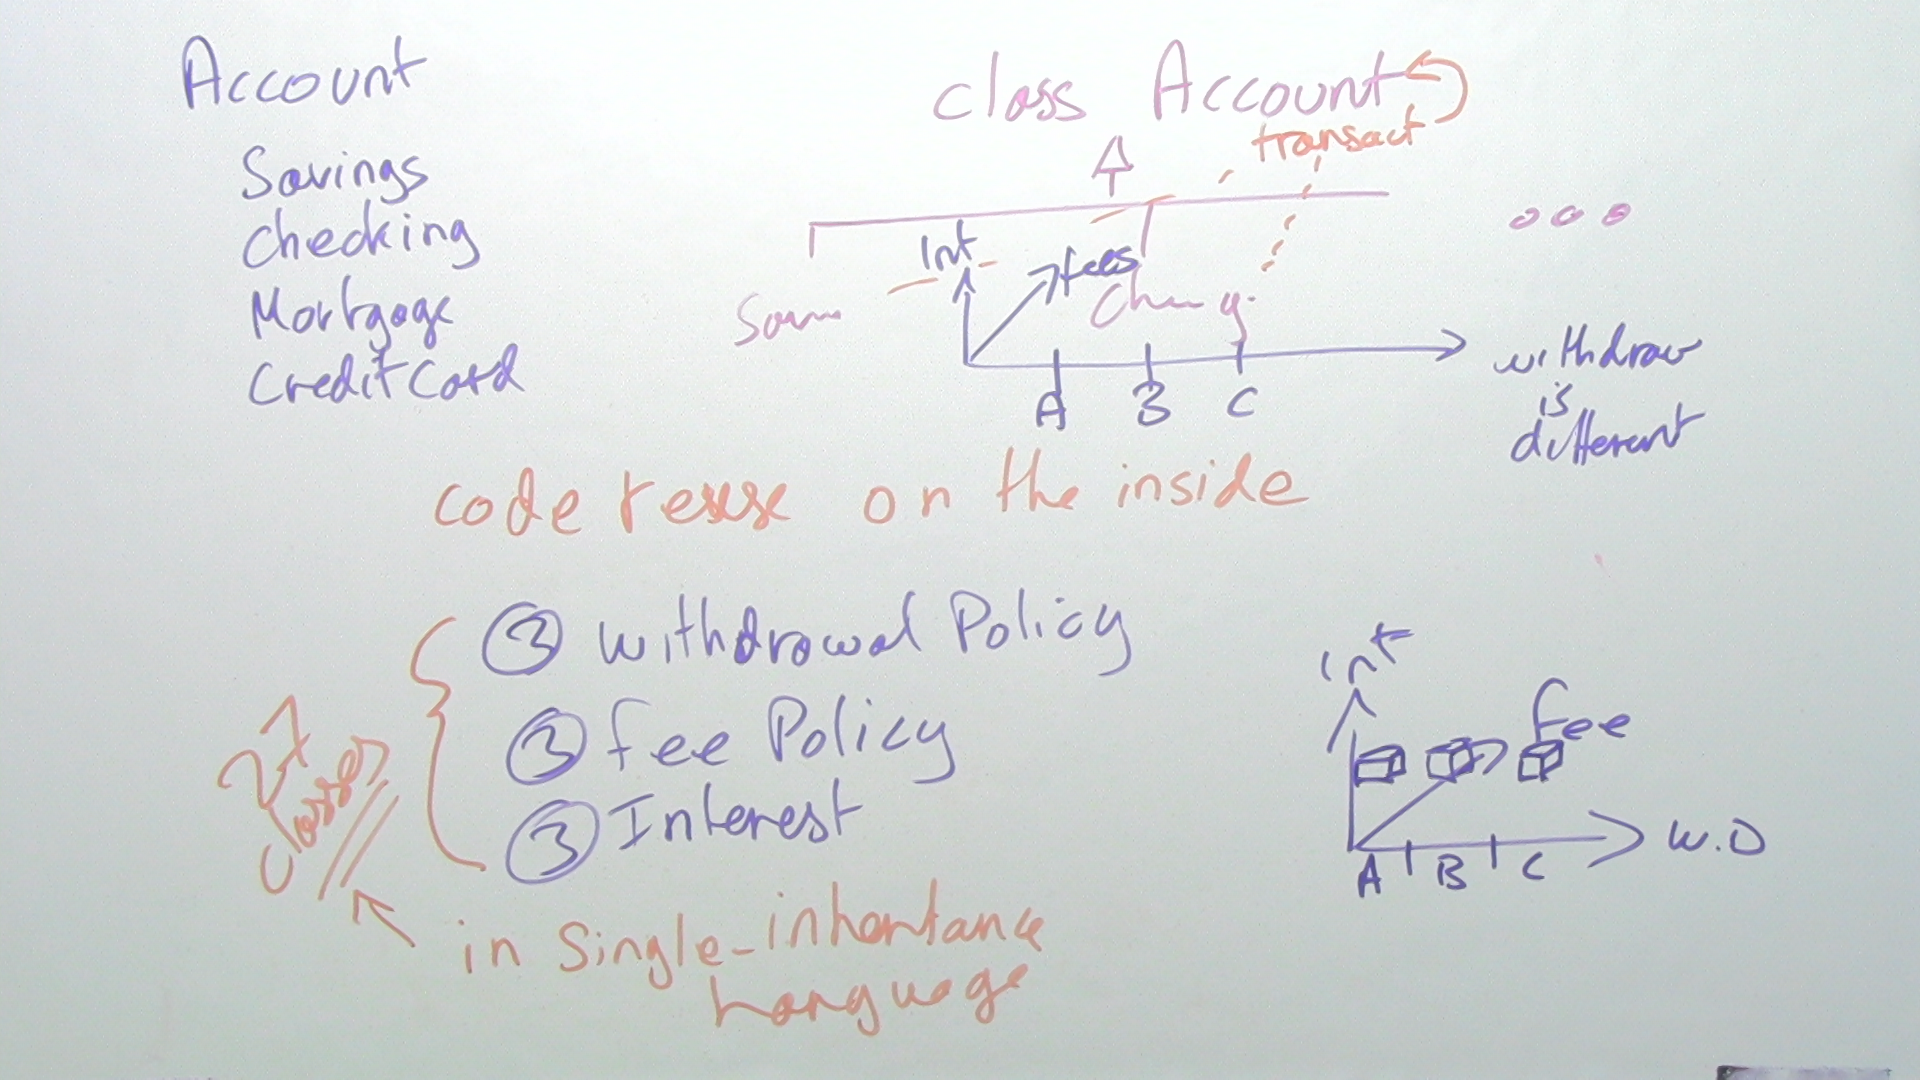 Account
Savings
Checking
Mortgage
CreditCard
class Account
transact
Int
fees
A B C
withdraw
is
different
code reuse on the inside
3 Withdrawal Policy
3 Fee Policy
3 Interest
27
classes
in single-inheritance
language
int
Fee
A B C
W.D